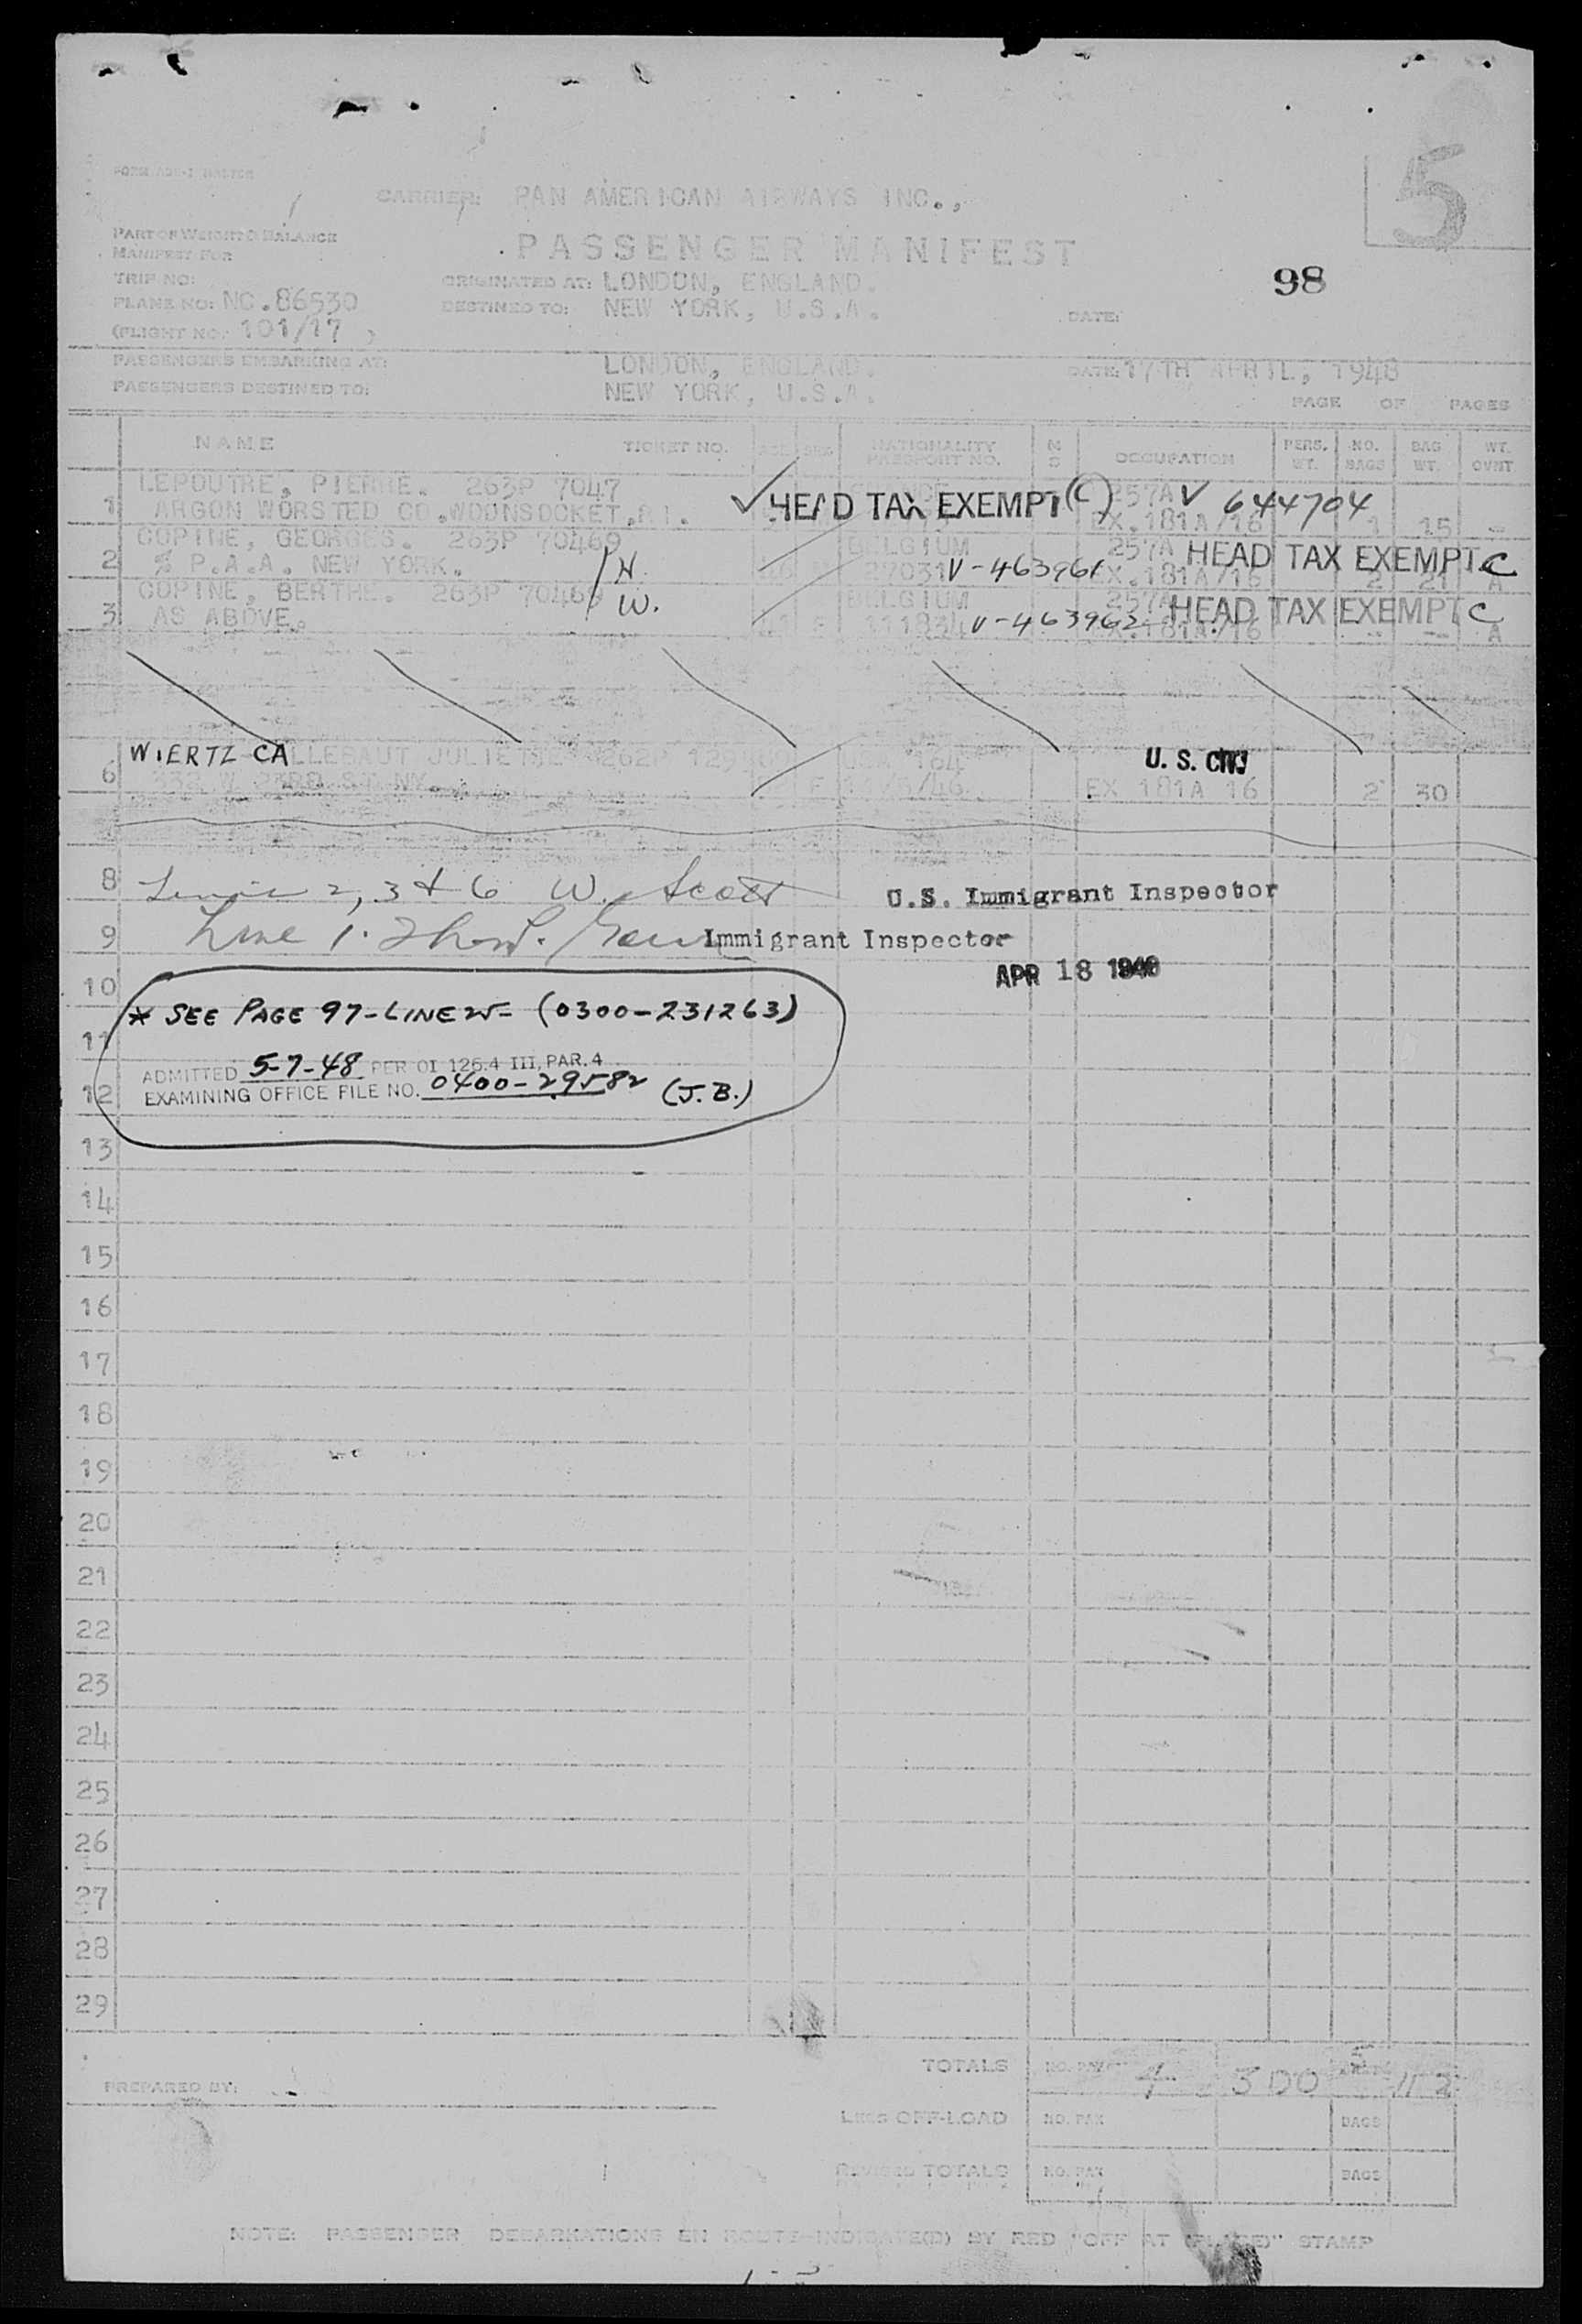 5
FORM ADR-1 MASTER
CARRIER: PAN AMERICAN AIRWAYS INC.,
PART OF WEIGHT & BALANCE
MANIFEST FOR
PASSENGER MANIFEST
98
TRIP NO:
ORIGINATED AT: LONDON, ENGLAND.
PLANE NO: NC.86530
DESTINED TO: NEW YORK, U.S.A.
DATE:
(FLIGHT NO. 101/17 )
PASSENGERS EMBARKING AT: LONDON, ENGLAND. DATE: 17TH APRIL, 1948
PASSENGERS DESTINED TO: NEW YORK, U.S.A.
PAGE OF PAGES
NAME TICKET NO. AGE SEX NATIONALITY PASSPORT NO. M S OCCUPATION PERS. WT. NO. BAGS BAG WT. WT. OVNT
LEPOUTRE, PIERRE. 263P 7047 257A V 644704
1 ARGON WORSTED CO.WOONSOCKET.RI. HEAD TAX EXEMPT (C) EX.181A/16 1 15 -
COPINE, GEORGES. 263P 70469 H. BELGIUM 257A HEAD TAX EXEMPT C
2 % P.A.A. NEW YORK. 27031 V-463961 EX.181A/16 2 21 A
COPINE, BERTHE. 263P 70469 W. BELGIUM 257A HEAD TAX EXEMPT C
3 AS ABOVE. 41 F 111834 V-463962 EX.181A/16 - - A
WIERTZ CALLEBAUT JULIETTE 262P 129 U. S. CIT.
6 332 W 23RD ST NY. F /46 EX 181A 16 2 30
8 Lines 2, 3 & 6 W. Scott U.S. Immigrant Inspector
9 Line 1. Immigrant Inspector
APR 18 1948
10
* SEE PAGE 97-LINE 25- (0300-231263)
11
ADMITTED 5-7-48 PER OI 126.4 III, PAR. 4
12 EXAMINING OFFICE FILE NO. 0400-29582 (J.B.)
13
14
15
16
17
18
19
20
21
22
23
24
25
26
27
28
29
TOTALS NO. PAX 4 300 BAGS 5 112
PREPARED BY:
LESS OFF-LOAD NO. PAX BAGS
REVISED TOTALS NO. PAX BAGS
NOTE: PASSENGER DEBARKATIONS EN ROUTE INDICATE(D) BY RED "OFF AT (PLACED" STAMP